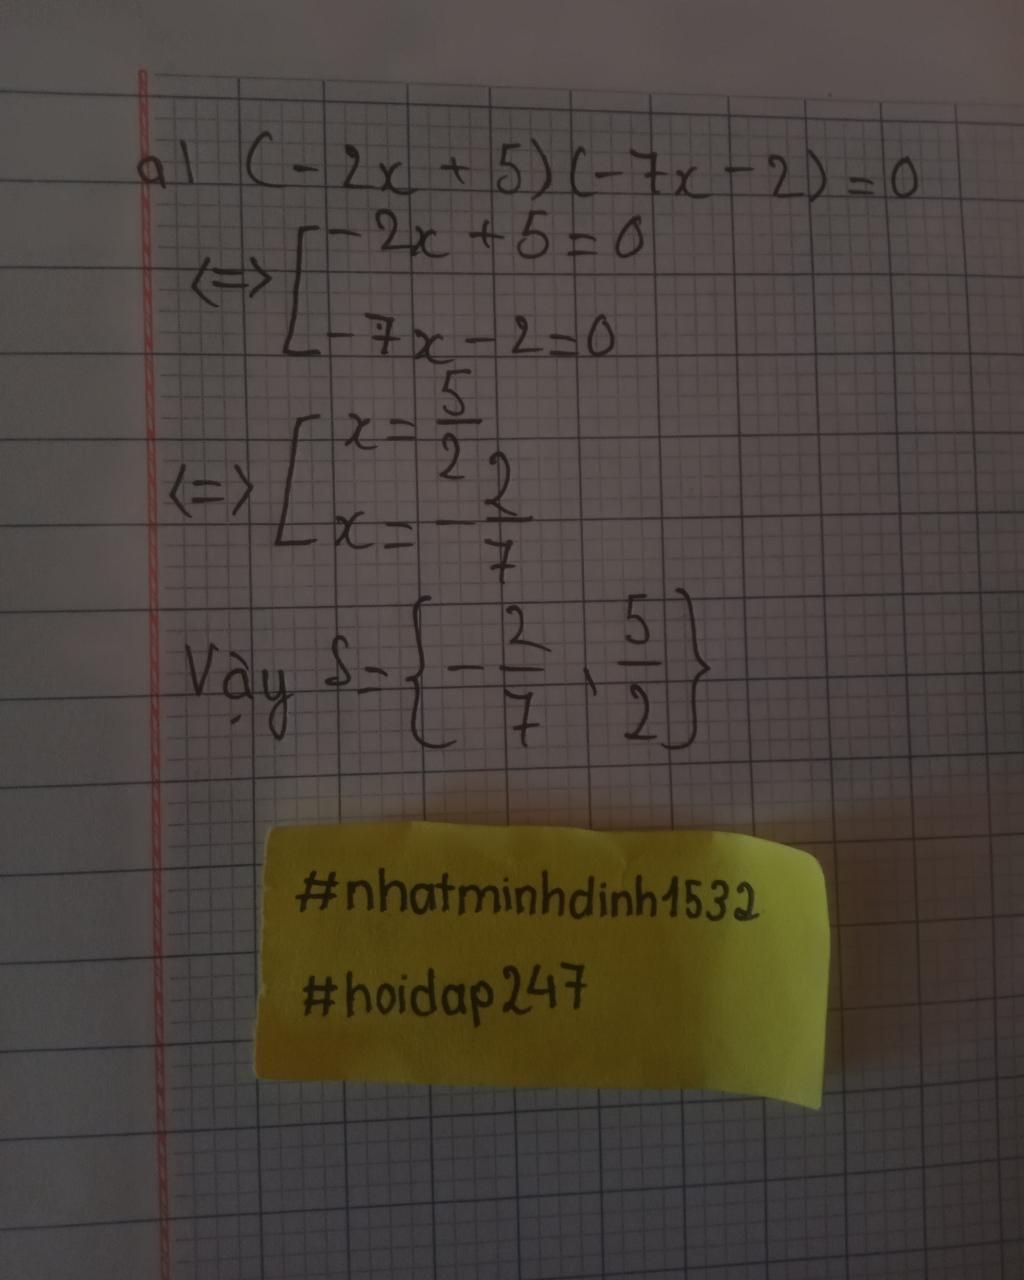 a) (-2x + 5)(-7x - 2) = 0
<=> [ -2x + 5 = 0
-7x - 2 = 0
<=> [ x = 5/2
x = - 2/7
Vậy S = { - 2/7 , 5/2 }
#nhatminhdinh1532
#hoidap247